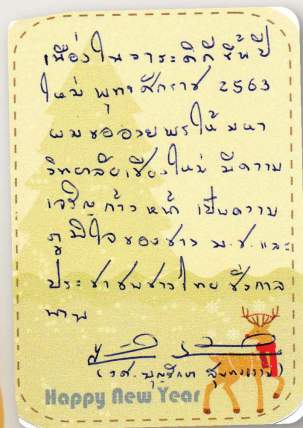 เนื่องในวาระดิถีขึ้นปี
ใหม่ พุทธศักราช 2563
ผมขออวยพรให้มหา
วิทยาลัยเชียงใหม่ มีความ
เจริญก้าวหน้า เป็นความ
ภูมิใจของชาว ม.ช. และ
ประชาชนชาวไทย ชั่วกาล
นาน
Happy New Year